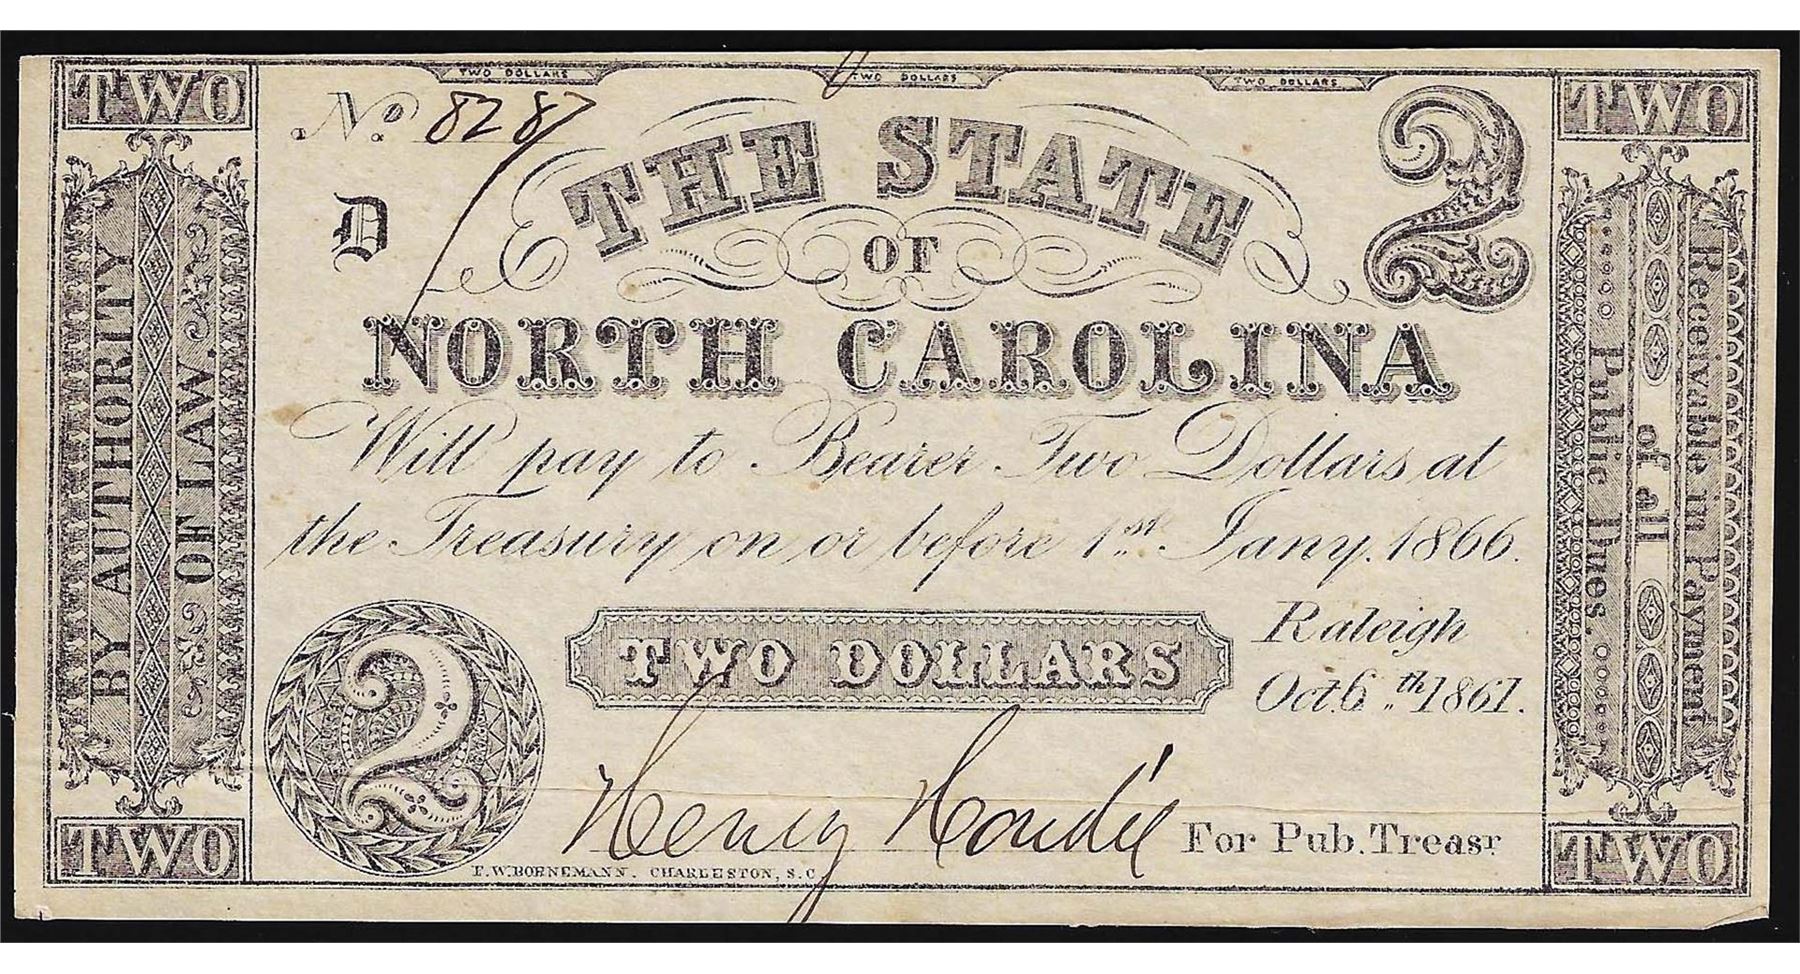 TWO DOLLARS TWO DOLLARS TWO DOLLARS
TWO
No. 8287
THE STATE
2
TWO
D
OF
NORTH CAROLINA
Will pay to Bearer Two Dollars at
the Treasury on or before 1st. Jany. 1866.
BY AUTHORITY
OF LAW.
Receivable in Payment
of all
Public Dues.
2
TWO DOLLARS
Raleigh
Oct. 6th 1861.
Henry Hardie For Pub. Treasr
TWO
F.W. BORNEMANN. CHARLESTON, S.C.
TWO